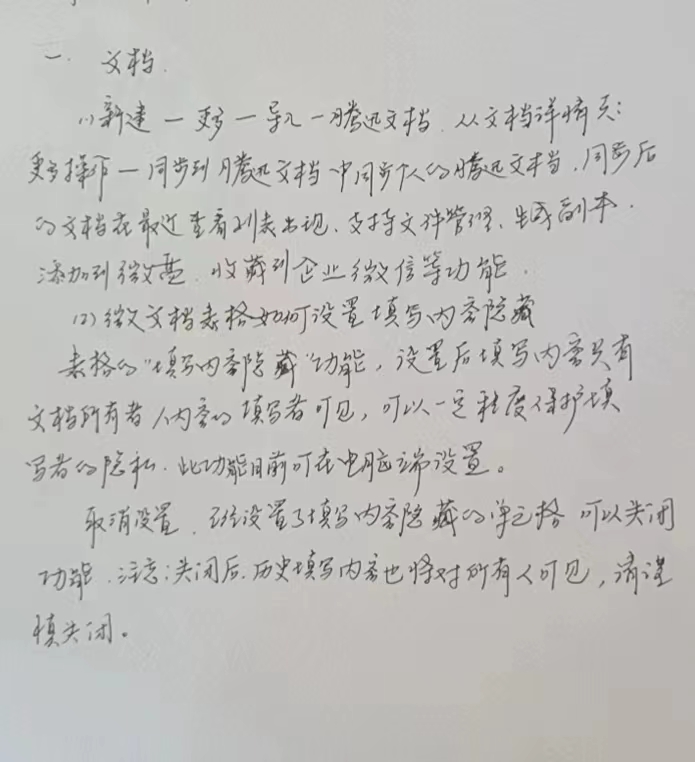 一. 文档.
(1)新建一更多一导入一腾迅文档. 从文档详情页:
更多操作一同步到腾迅文档中同步个人的腾迅文档. 同步后
的文档在最近查看列表出现. 支持文件管理. 生成副本.
添加到微盘. 收藏到企业微信等功能.
(2) 微文档表格如何设置填写内容隐藏
表格的"填写内容隐藏"功能, 设置后填写内容只有
文档所有者 人内容的填写者可见, 可以一定程度保护填
写者的隐私. 此功能目前可在电脑端设置。
取消设置. 设置了填写内容隐藏的单元格 可以关闭
功能. 注意:关闭后. 历史填写内容也将对所有人可见, 请谨
慎关闭。